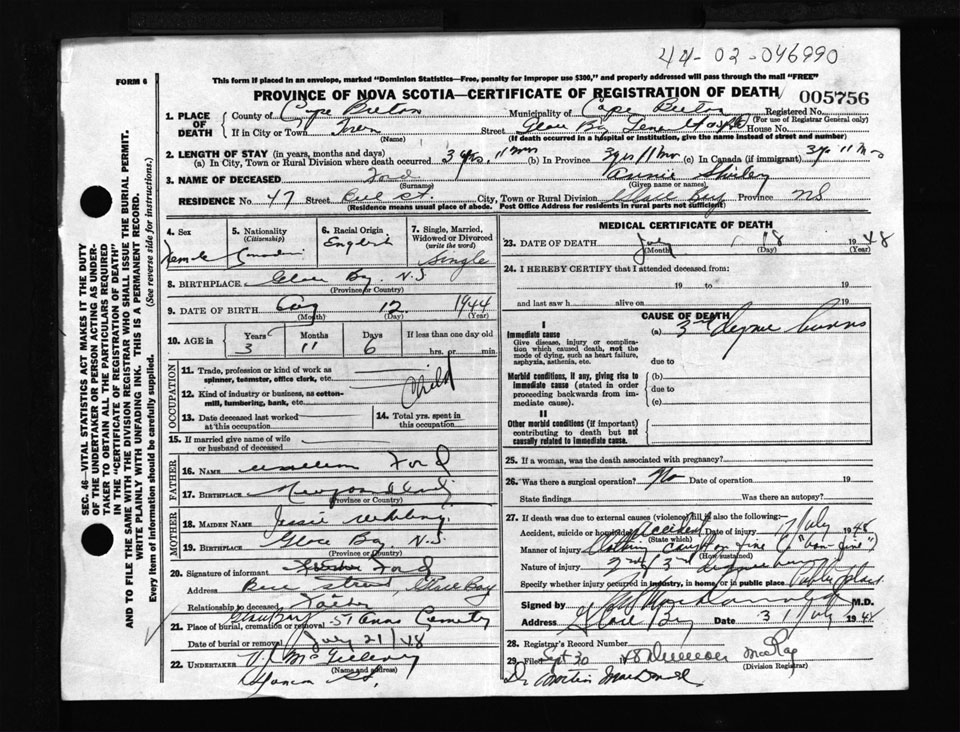 44-02-046990
FORM 6
This form if placed in an envelope, marked "Dominion Statistics—Free, penalty for improper use $300," and properly addressed will pass through the mail "FREE"
PROVINCE OF NOVA SCOTIA—CERTIFICATE OF REGISTRATION OF DEATH 005756
1. PLACE OF DEATH
County of Cape Breton Municipality of Cape Breton Registered No.
(For use of Registrar General only)
If in City or Town Town Street Glace Bay General Hosptl House No.
(Name) (If death occurred in a hospital or institution, give the name instead of street and number)
2. LENGTH OF STAY (in years, months and days)
(a) In City, Town or Rural Division where death occurred 3 yrs. 11 mos (b) In Province 3 yrs 11 mos (c) In Canada (if immigrant) 3 yrs 11 mos
3. NAME OF DECEASED Ford Annie Shirley
(Surname) (Given name or names)
RESIDENCE No. 47 Street St. City, Town or Rural Division Glace Bay Province NS
(Residence means usual place of abode. Post Office Address for residents in rural parts not sufficient)
4. Sex
Female
5. Nationality
(Citizenship)
Canadian
6. Racial Origin
English
7. Single, Married, Widowed or Divorced
(write the word)
Single
8. BIRTHPLACE Glace Bay N.S
(Province or Country)
9. DATE OF BIRTH Aug 12 1944
(Month) (Day) (Year)
10. AGE in Years Months Days If less than one day old
3 11 6 hrs. or min.
OCCUPATION
11. Trade, profession or kind of work as spinner, teamster, office clerk, etc.
Child
12. Kind of industry or business, as cotton-mill, lumbering, bank, etc.
13. Date deceased last worked at this occupation
14. Total yrs. spent in this occupation
15. If married give name of wife or husband of deceased
FATHER
16. NAME William Ford
17. BIRTHPLACE Newfoundland
(Province or Country)
MOTHER
18. MAIDEN NAME Jessie
19. BIRTHPLACE Glace Bay N.S.
(Province or Country)
20. Signature of informant Ford
Address Street, Glace Bay
Relationship to deceased Father
21. Place of burial, cremation or removal Glace Bay St Anns Cemetry
Date of burial or removal July 21/48
22. UNDERTAKER V. J. McGillivray
(Name and address)
MEDICAL CERTIFICATE OF DEATH
23. DATE OF DEATH July 18 1948
(Month) (Day) (Year)
24. I HEREBY CERTIFY that I attended deceased from:
19 to 19
and last saw h alive on 19
CAUSE OF DEATH
I
Immediate cause
Give disease, injury or complication which caused death, not the mode of dying, such as heart failure, asphyxia, asthenia, etc.
(a) 3rd degree burns
due to
Morbid conditions, if any, giving rise to immediate cause (stated in order proceeding backwards from immediate cause).
(b)
due to
(c)
II
Other morbid conditions (if important) contributing to death but not causally related to immediate cause.
25. If a woman, was the death associated with pregnancy?
26. Was there a surgical operation? No Date of operation 19
State findings Was there an autopsy?
27. If death was due to external causes (violence) fill in also the following:
Accident, suicide or homicide? Accident Date of injury 17 July 1948
(State which)
Manner of injury Clothing caught on fire ("bon-fire")
(How sustained)
Nature of injury 2nd, 3rd degree burns
Specify whether injury occurred in industry, in home, or in public place Public place
Signed by MacDonald M.D.
Address Glace Bay Date 31 July 1948
28. Registrar's Record Number
29. Filed Sept 30 1948 MacKay
(Division Registrar)
Dr. MacDonald
SEC. 46—VITAL STATISTICS ACT MAKES IT THE DUTY
OF THE UNDERTAKER OR PERSON ACTING AS UNDER-
TAKER TO OBTAIN ALL THE PARTICULARS REQUIRED
IN THE "CERTIFICATE OF REGISTRATION OF DEATH"
AND TO FILE THE SAME WITH THE DIVISION REGISTRAR WHO SHALL ISSUE THE BURIAL PERMIT.
WRITE PLAINLY WITH UNFADING INK. THIS IS A PERMANENT RECORD.
Every item of information should be carefully supplied. (See reverse side for instructions.)